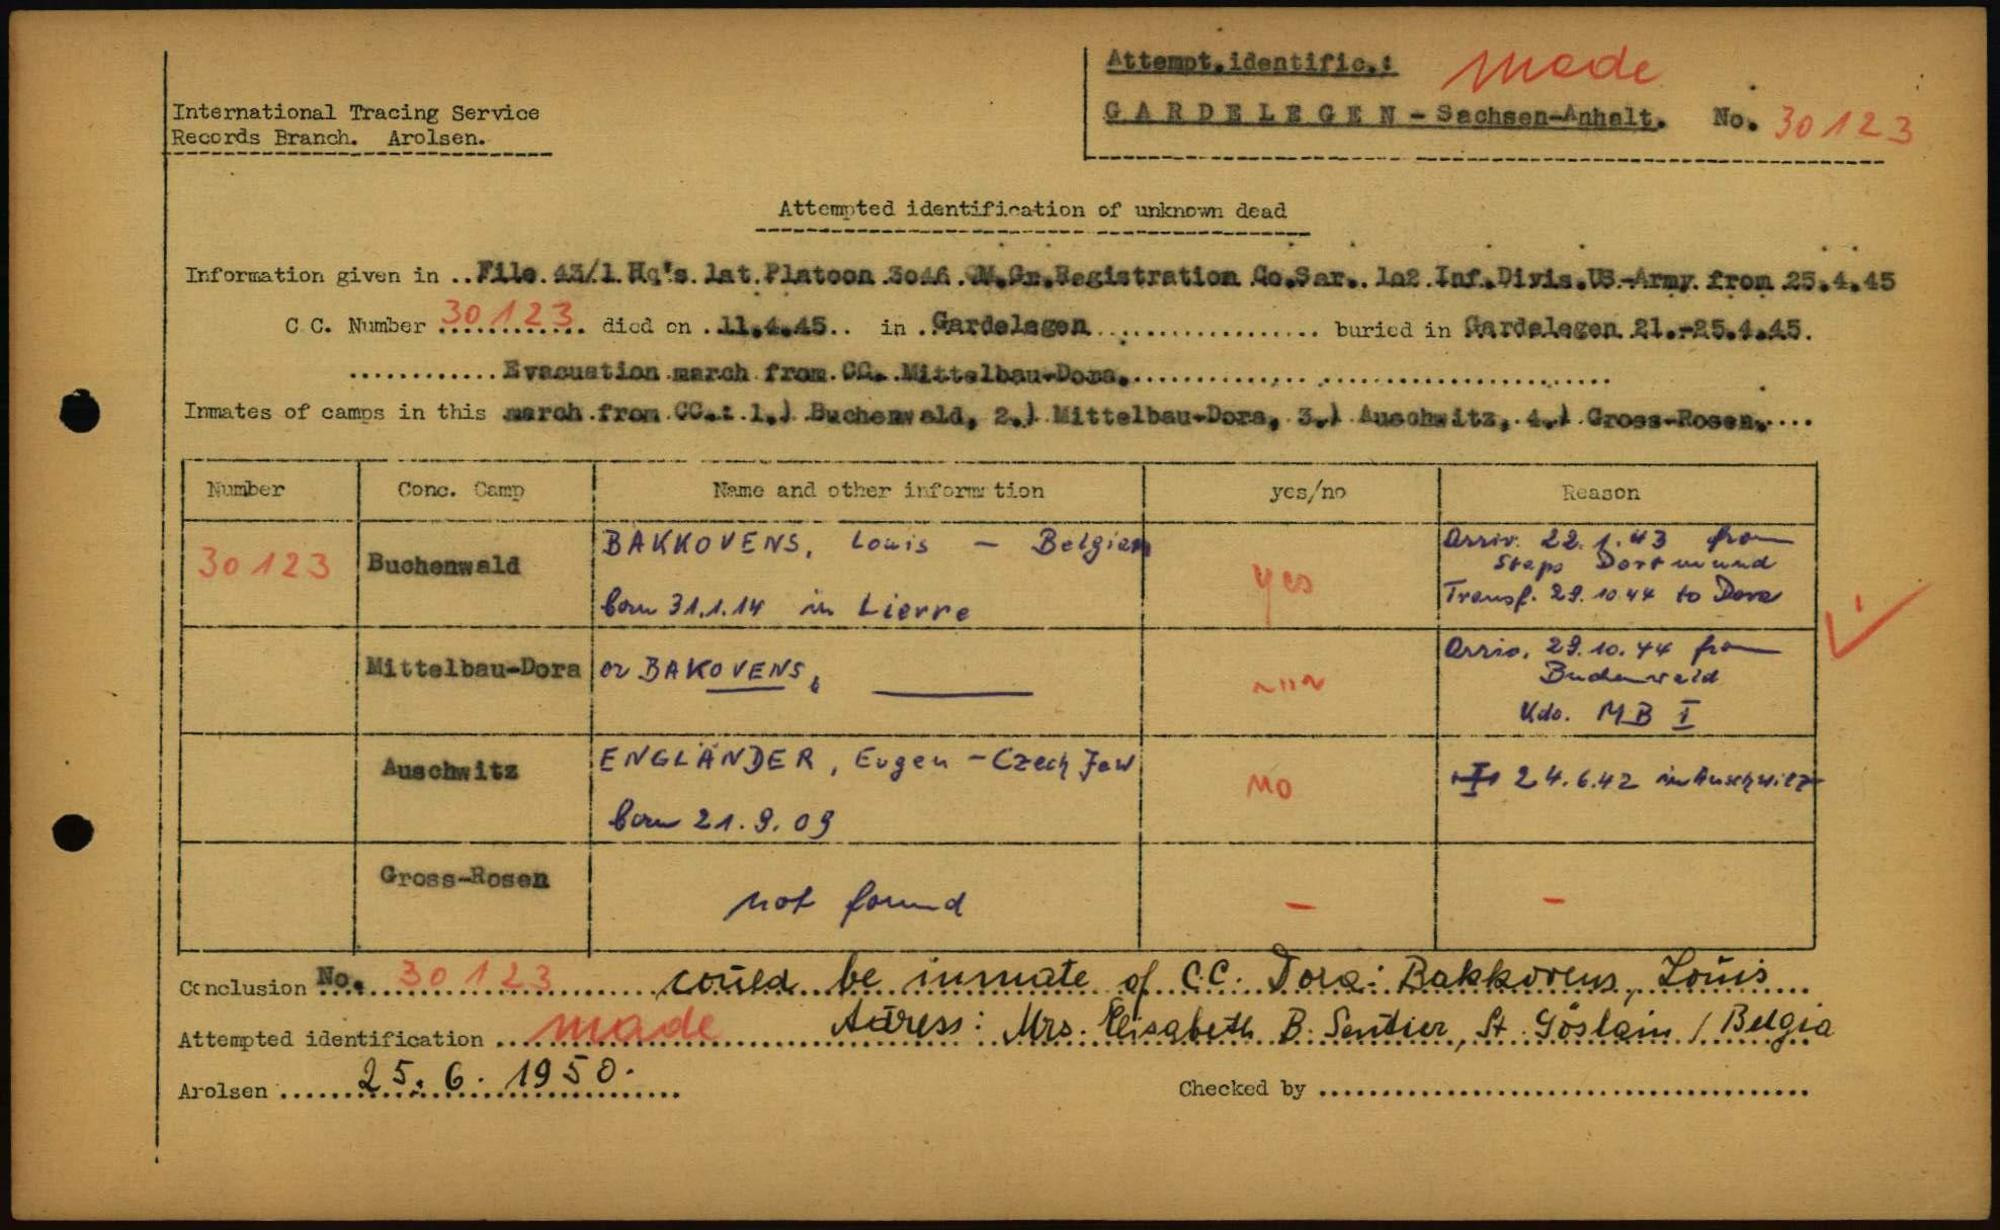 Attempt.identific.: made
International Tracing Service
Records Branch. Arolsen.
GARDELEGEN - Sachsen-Anhalt. No. 30123
Attempted identification of unknown dead
Information given in ..File.43/1.Hq's.1at.Platoon.3046.M.Gr.Registration Co.Sar..1o2.Inf.Divis.US-Army.from 25.4.45
C.C. Number 30123 died on .11.4.45.. in .Gardelegen.................. buried in Gardelegen 21.-25.4.45.
............Evacuation march from.CC. Mittelbau-Dora.............................
Inmates of camps in this march.from CC.: 1.) Buchenwald, 2.) Mittelbau-Dora, 3.) Auschwitz, 4.) Gross-Rosen.....
Number Conc. Camp Name and other information yes/no Reason
30123 Buchenwald BAKKOVENS, Louis - Belgian yes Arriv. 22.1.43 from
Stapo Dortmund
born 31.1.14 in Lierre Transf. 29.10.44 to Dora
Mittelbau-Dora or BAKOVENS, Arriv. 29.10.44 from
Buchenwald
Kdo. MB I
Auschwitz ENGLÄNDER, Eugen - Czech Jew no 24.6.42 in Auschwitz
born 21.9.09
Gross-Rosen not found - -
Conclusion No. 30123 could be inmate of C.C. Dora: Bakkovens, Louis
Attempted identification ... made Adress: Mrs. Elisabeth B. Sentier, St. Göslain / Belgia
Arolsen 25.6.1950. Checked by ......................................